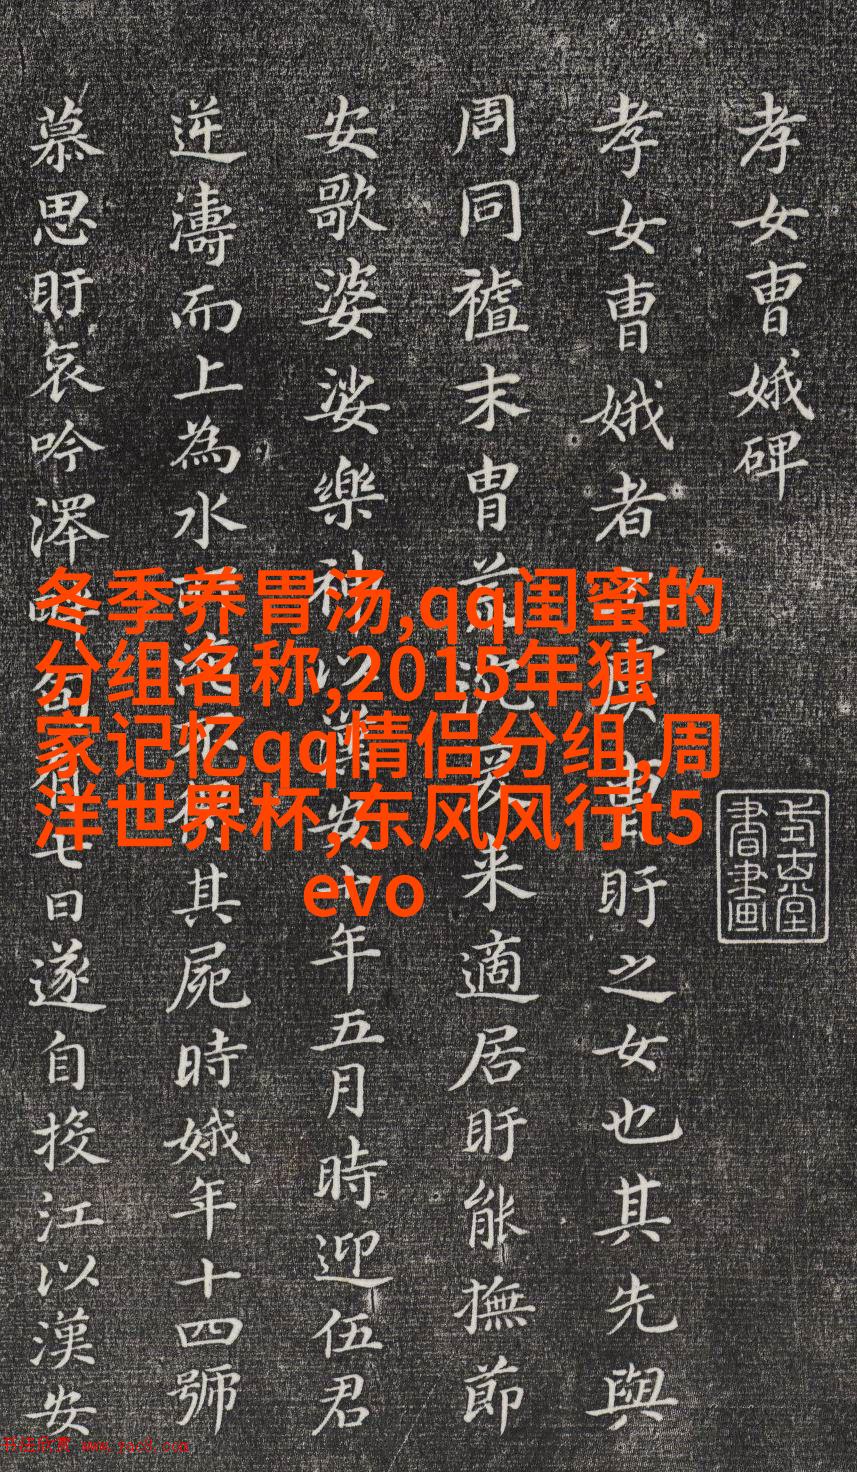 孝女曹娥碑
孝女曹娥者上虞曹盱之女也其先與
周同祖末胄荒沈爰来適居盱能撫節
安歌婆娑樂神以漢安二年五月時迎伍君
逆濤而上為水所淹不得其屍時娥年十四號
慕思盱哀吟澤畔旬有七日遂自投江以漢安
冬季养胃汤,qq闺蜜的
分组名称,2015年独
家记忆qq情侣分组,周
洋世界杯,东风风行t5
evo
书法欣赏 www.yac8.com